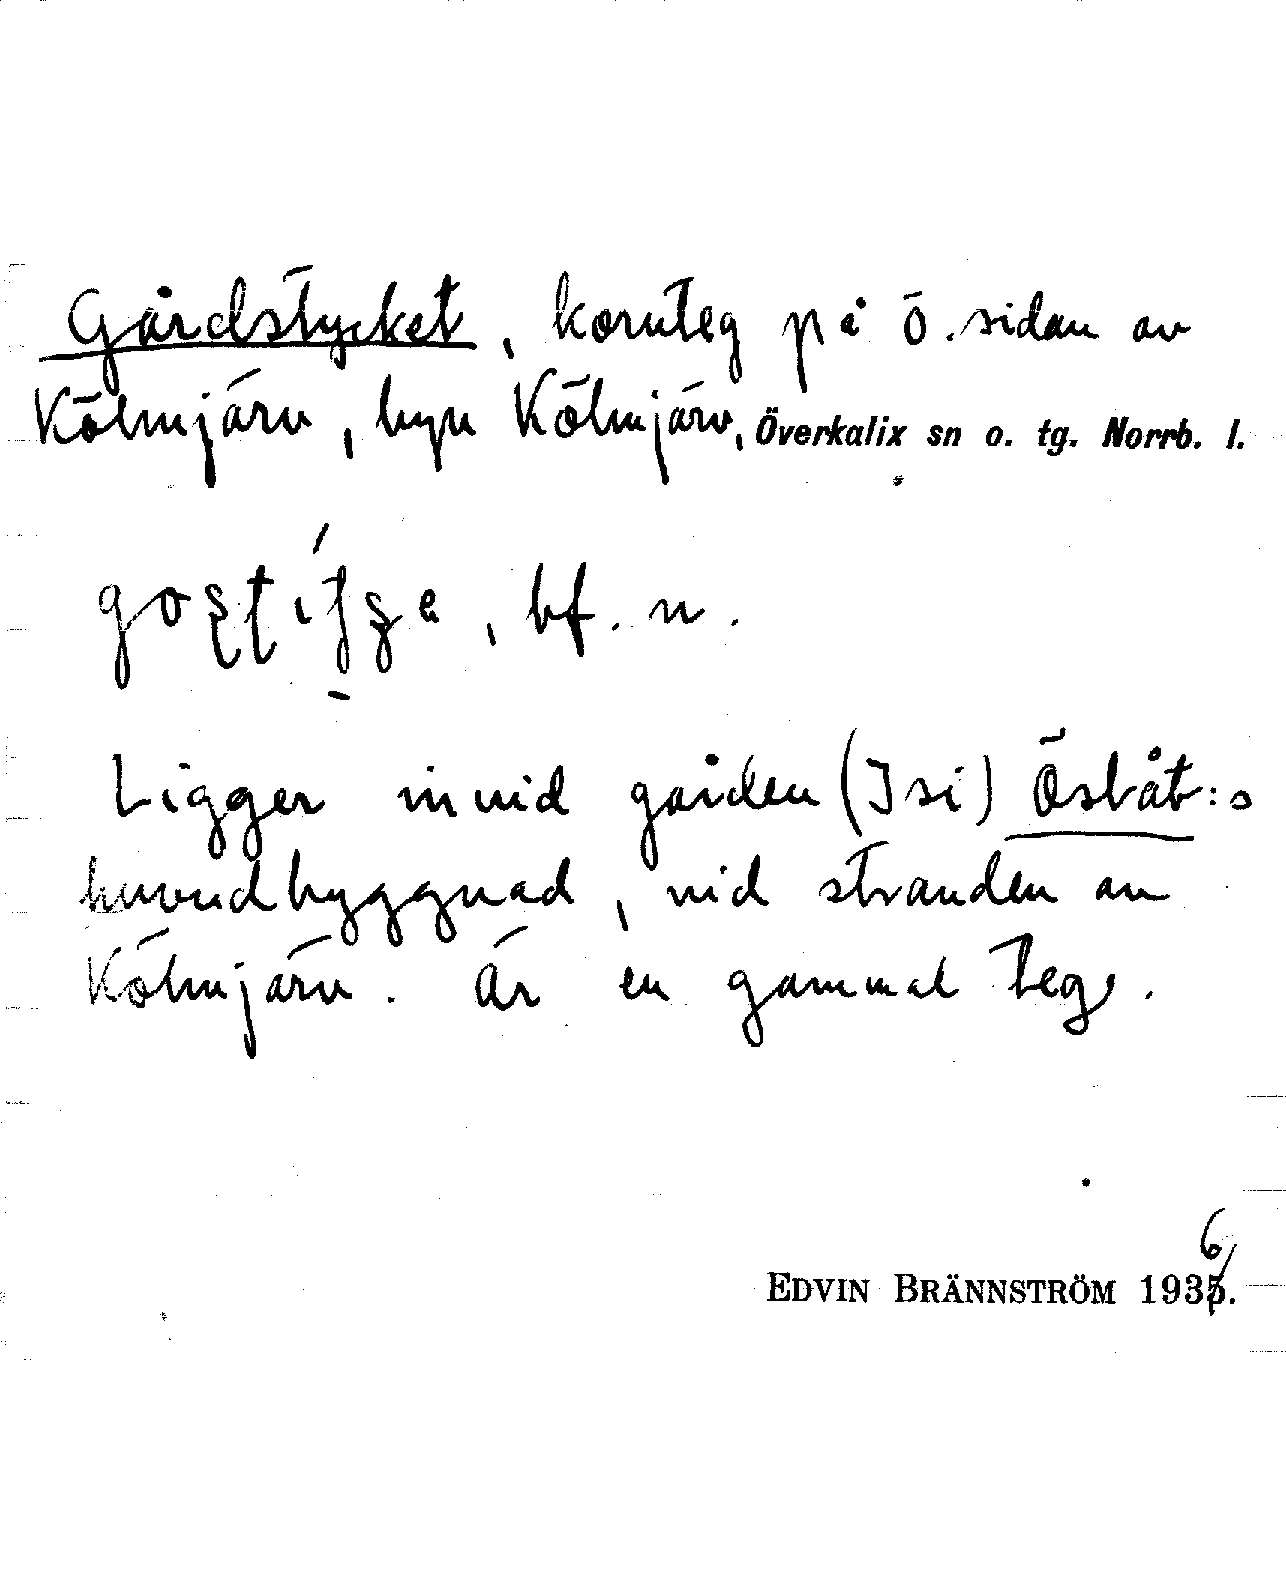 Gårdstycket, kornteg på ö. sidan av
Kölmjärv, byn Kölmjärv, Överkalix sn o. tg. Norrb. l.
, bf. n.
Ligger invid gården (Isi) Ösbåt:s
huvudbyggnad, vid stranden av
Kölmjärv. Är en gammal teg.
6
EDVIN BRÄNNSTRÖM 1935.